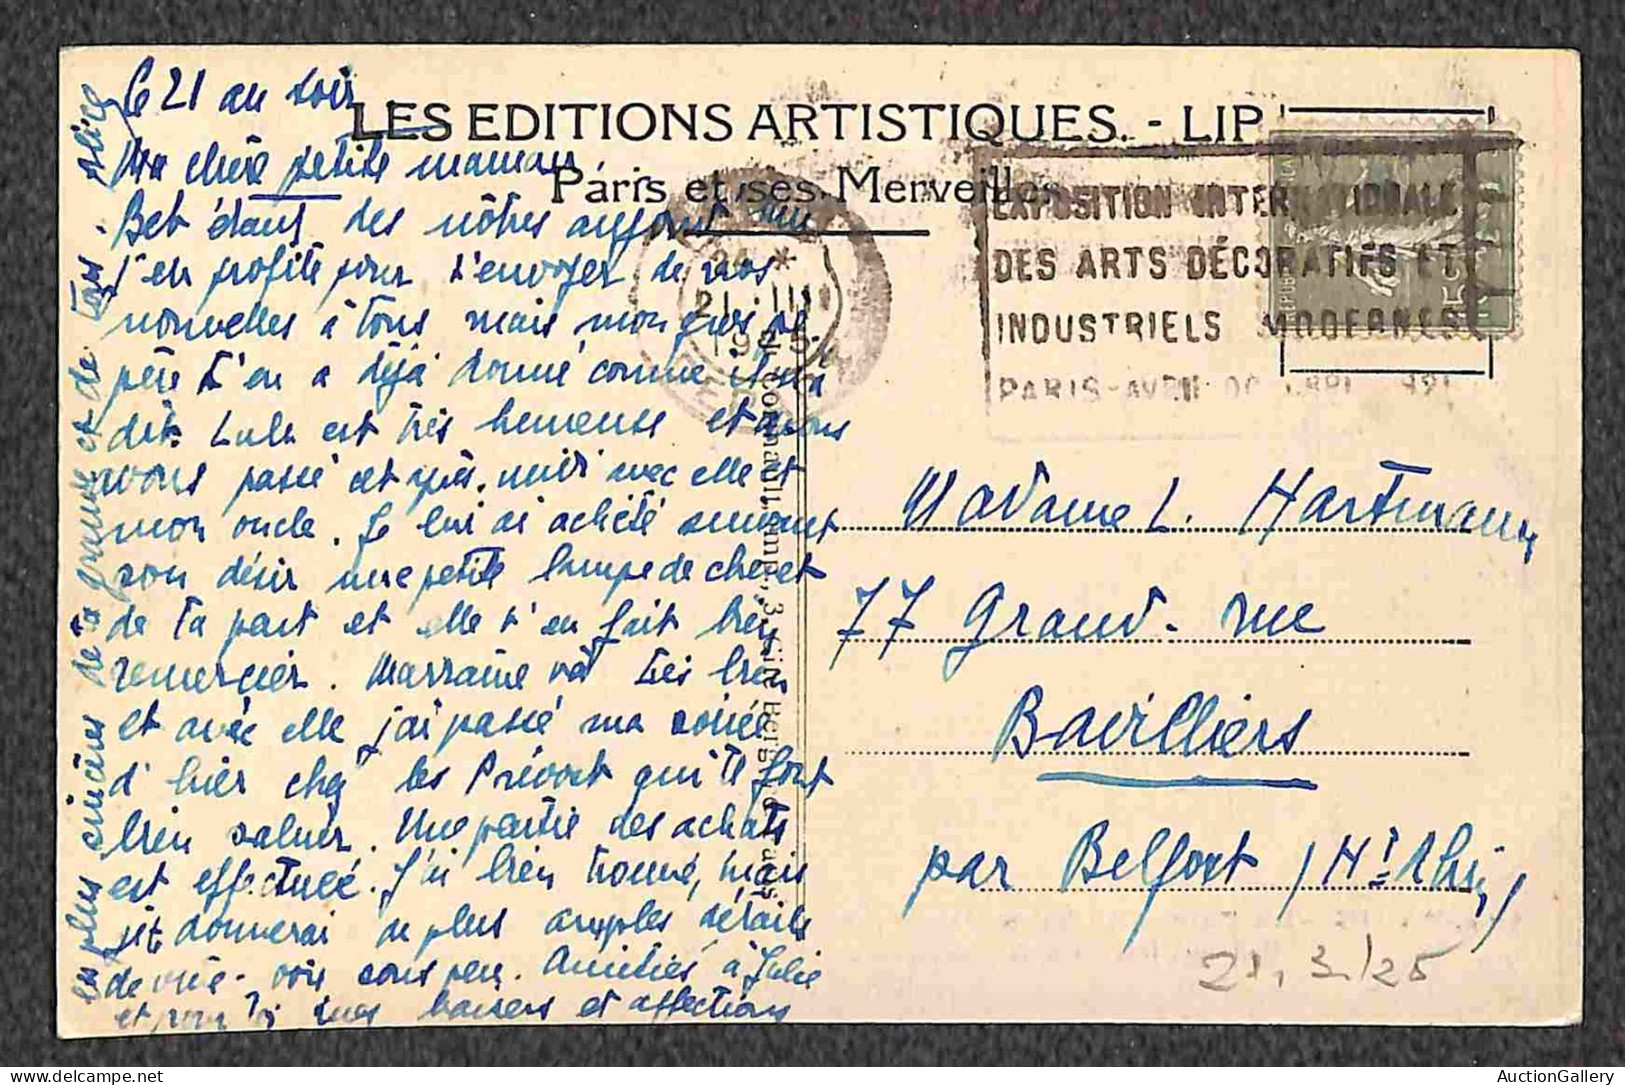 LES EDITIONS ARTISTIQUES. - LIP
Paris et ses Merveilles
EXPOSITION INTERNATIONALE
DES ARTS DÉCORATIFS ET
INDUSTRIELS MODERNES
PARIS-AVRIL
21 · III
Le 21 au soir
Ma chère petite maman,
Bet étant des nôtres
j'en profite pour t'envoyer de nos
nouvelles à tous mais mon
père t'en a déjà donné comme il
dit. Lulu est très heureuse et avons
avons passé cet après. midi avec elle et
mon oncle. Je lui ai acheté suivant
son désir une petite lampe de chevet
de ta part et elle t'en fait bien
remercier. Marraine va très bien
et avec elle j'ai passé ma soirée
d'hier chez les Prévost qui te font
bien saluer. Une partie des achats
est effectuée. J'ai bien trouvé, mais
je t. donnerai de plus amples détails
de vive. voix sous peu. Amitiés à Julie
et pour toi mes baisers et affections
les plus sincères de ta grande et de tous.
Madame L. Hartmann
77 Grand. rue
Bavilliers
par Belfort (Ht Rhin)
21. 3./25